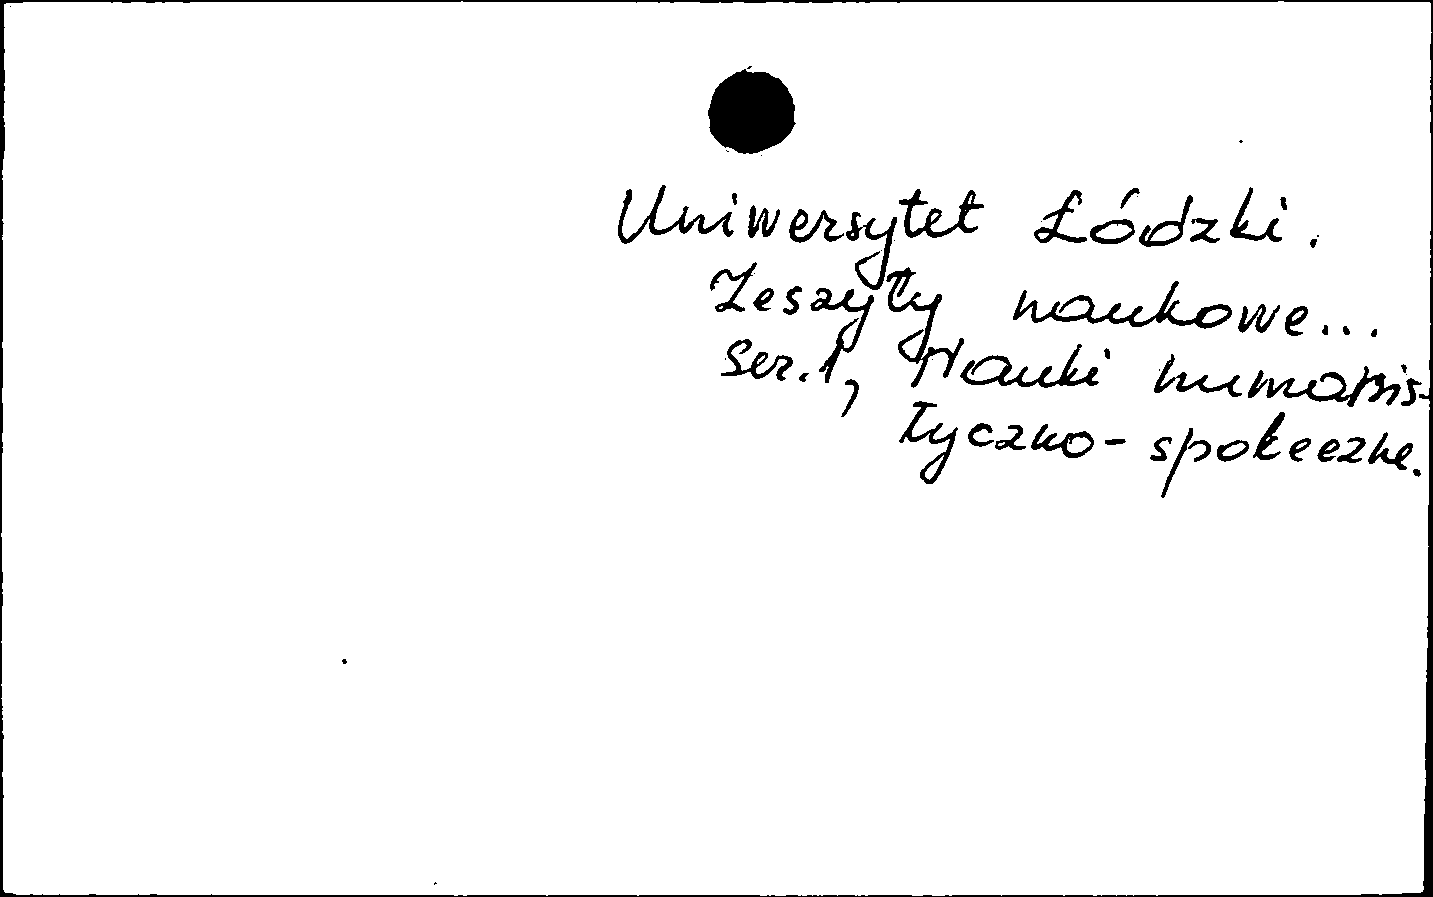 Uniwersytet Łódzki.
Zeszyty naukowe...
Ser. 1, Nauki humanis-
tyczno-społeczne.